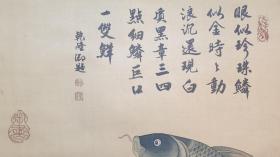 眼似珍珠鱗
似金時〻動
浪沉還現白
質黑章三四
點細鱗巨口
一雙鮮
乾隆御題